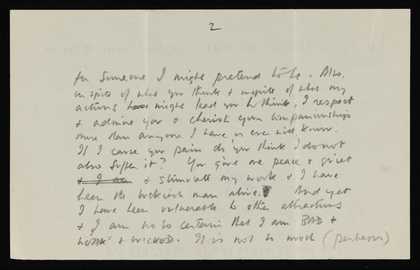 2
for someone I might pretend to be. Also,
in spite of what you think & in spite of what my
actions have might lead you to think, I respect
& admire you & cherish your companionship
more than anyone I have or ever will know.
If I cause you pain do you think I do not
also suffer it? You give me peace & quiet
& I am & stimulate my work & I have
been the luckiest man alive. And yet
I have been vulnerable to other attractions
& I am not so certain that I am BAD &
WEAK & WICKED. It is not so much (perhaps)